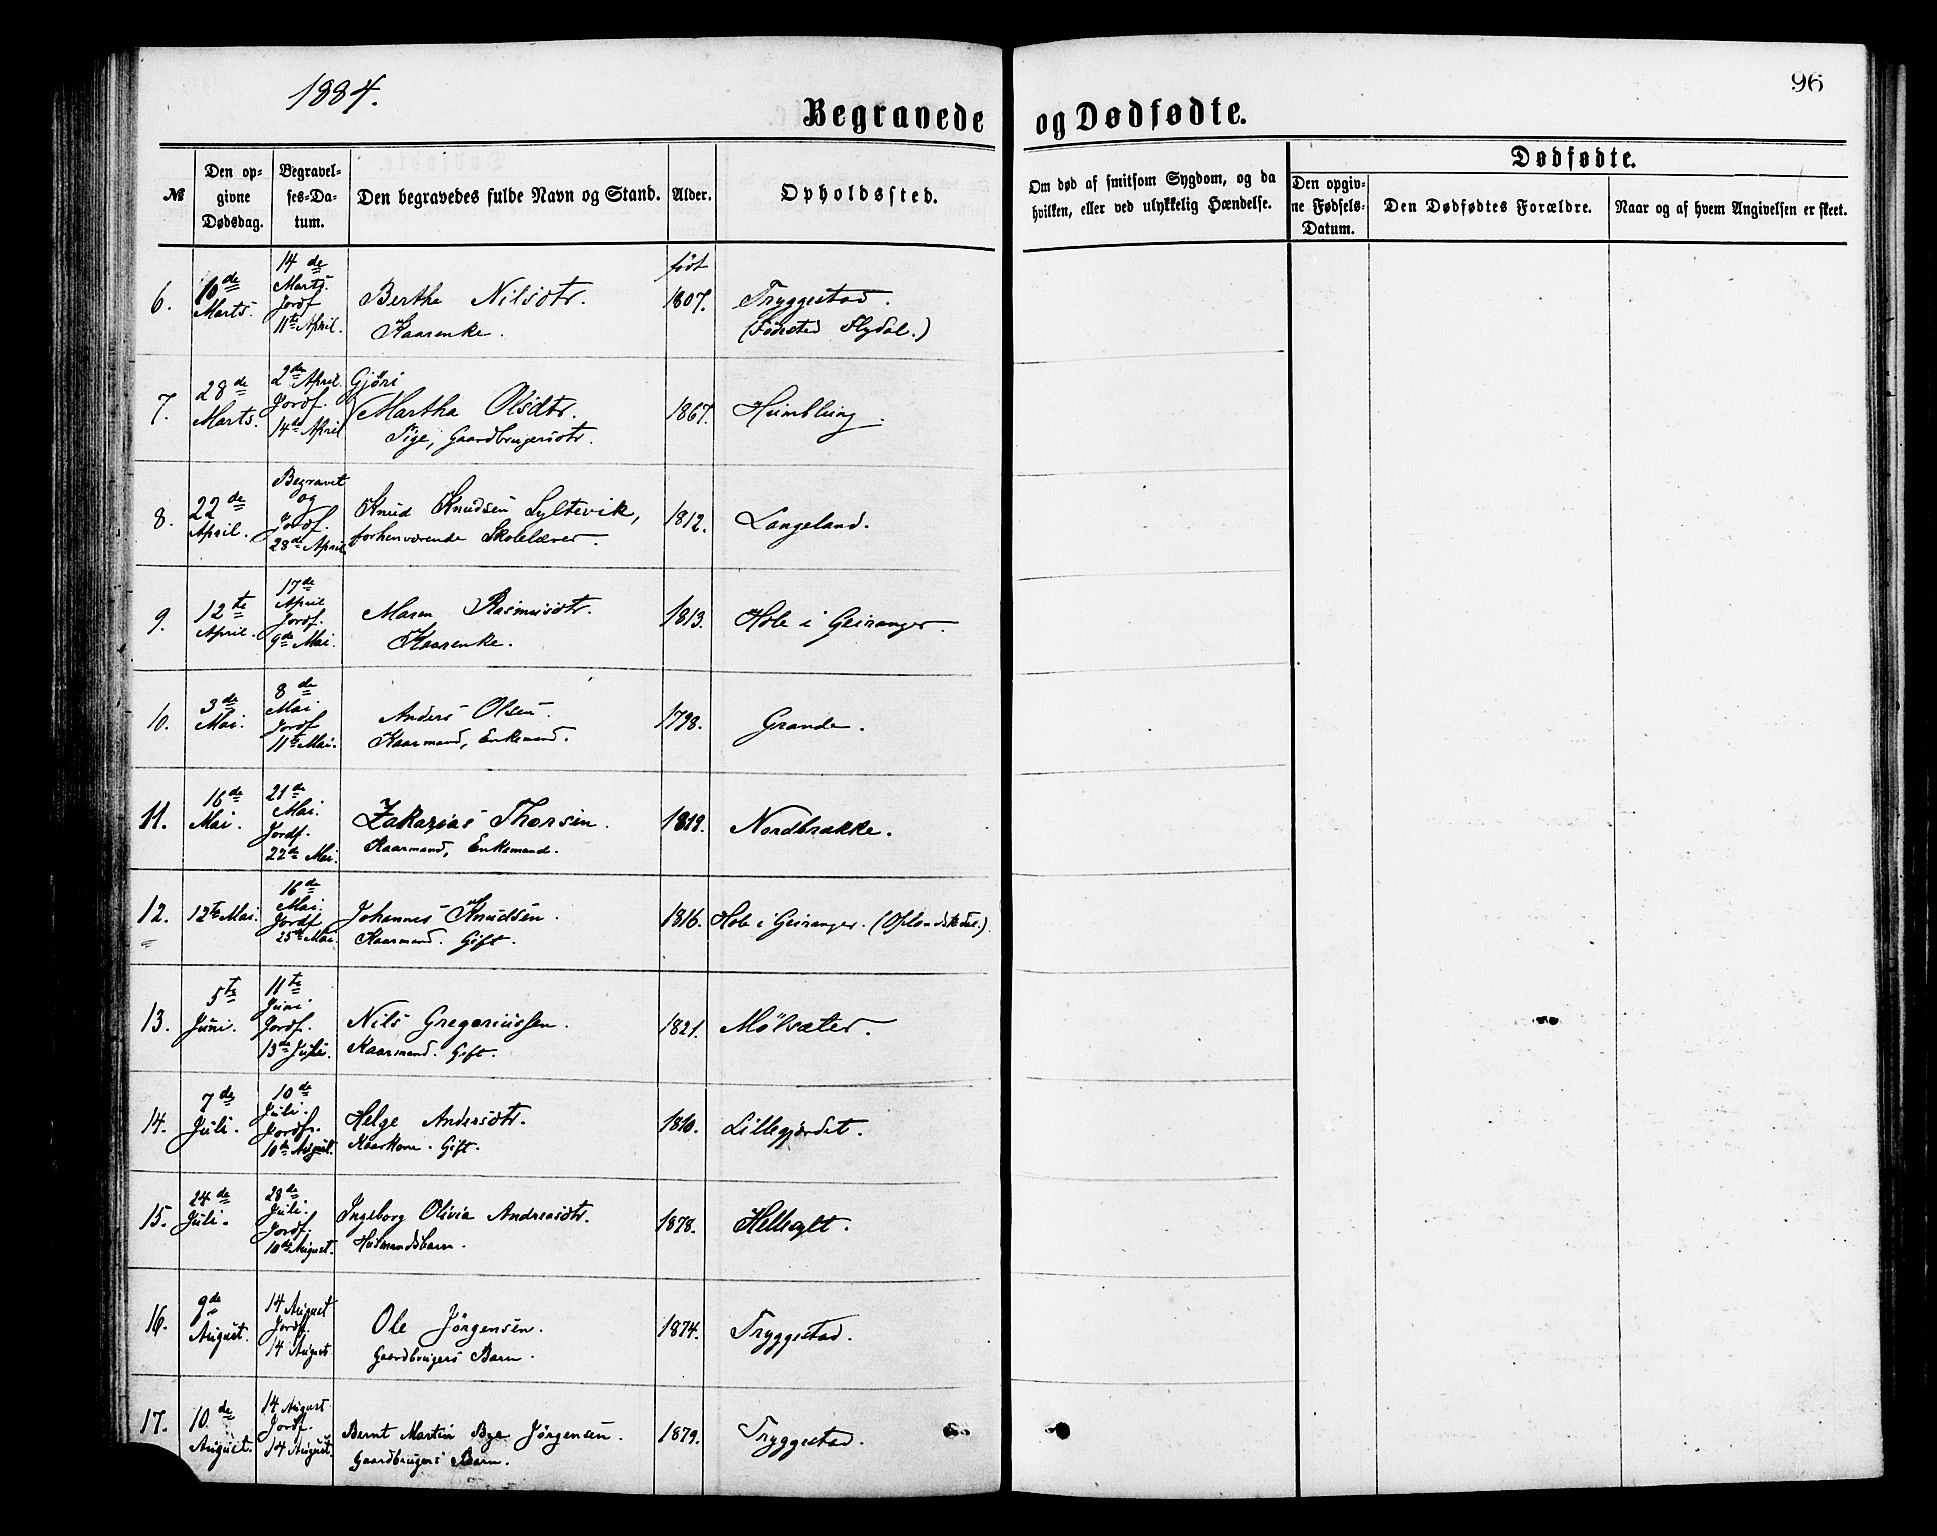 1884.
96
Begravede og Dødfødte.
№
Den op-
givne
Dødsdag.
Begravel-
ses-Da-
tum.
Den begravedes fulde Navn og Stand.
Alder.
Opholdssted.
Om død af smitsom Sygdom, og da
hvilken, eller ved ulykkelig Hændelse.
Dødfødte.
Den opgiv-
ne Fødsels-
Datum.
Den Dødfødtes Forældre.
Naar og af hvem Angivelsen er skeet.
6.
10de
Marts.
14de
Marts.
Jordf.
11te April.
Berthe Nilsdtr.
Kaarenke.
født
1807.
Tryggestad.
(Fødested Flydal.)
7.
28de
Marts.
2den April.
Jordf.
14de April
Gjøri
Martha Olsdtr.
Pige, Gaardbrugersdtr.
1867.
Humblung.
8.
22de
April.
Begravet
og
Jordf.
28de April
Knud Knudsen Syltevik,
forhenværende Skolelærer.
1812.
Langeland.
9.
12te
April.
17de
April
Jordf.
9de Mai.
Maren Rasmusdtr.
Kaarenke.
1813.
Hole i Geiranger.
10.
3de
Mai.
8de
Mai
Jordf
11te Mai.
Anders Olsen.
Kaarmand, Enkemand.
1798.
Grande.
11.
16de
Mai.
21de
Mai.
Jordf.
22de Mai.
Zakarias Thorsen.
Kaarmand, Enkemand.
1819.
Nordbrække.
12.
12te Mai.
16de
Mai.
Jordf
25de Mai.
Johannes Knudsen.
Kaarmand. Gift.
1816.
Hole i Geiranger. (Oplandskdal.)
13.
5te
Juni.
11te
Juni
Jordf.
13de Juli.
Nils Gregoriussen.
Kaarmand. Gift.
1821.
Mölsæter.
14.
7de
Juli.
10de
Juli.
Jordf.
10de August.
Helge Andersdtr.
Kaarkone. Gift.
1810.
Lillegjærdet.
15.
24de
Juli.
28de
Juli.
Jordf.
10de August.
Ingeborg Olivia Andreasdtr.
Husmandsbarn.
1878.
Hellesylt.
16.
9de
August.
14 August
Jordf.
14 August
Ole Jørgensen.
Gaardbrugers Barn.
1874.
Tryggestad.
17.
10de
August.
14 August
Jordf.
14 August.
Bernt Martin Bye Jørgensen.
Gaardbrugers Barn.
1879.
Tryggestad.